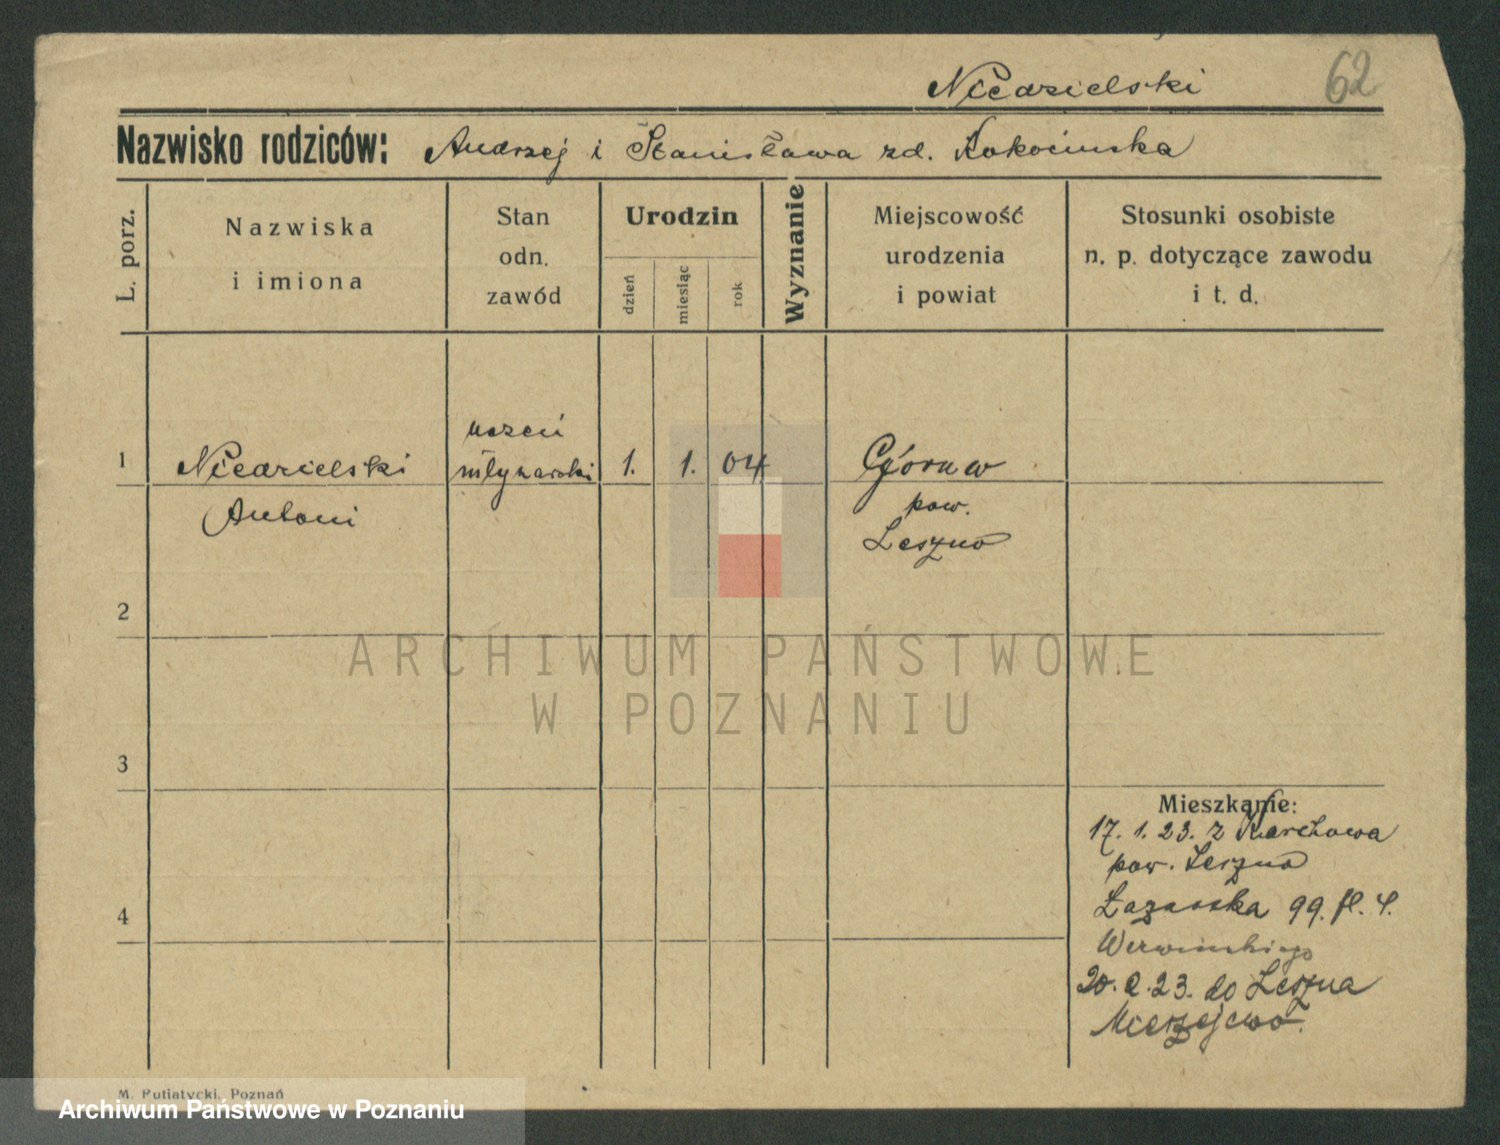 Niedzielski
62
Nazwisko rodziców: Andrzej i Stanisława zd. Kokocinska
L. porz.
Nazwiska
i imiona
Stan
odn.
zawód
Urodzin
dzień
miesiąc
rok
Wyznanie
Miejscowość
urodzenia
i powiat
Stosunki osobiste
n. p. dotyczące zawodu
i t. d.
1
Niedzielski
Antoni
uczeń
młynarski
1. 1. 04
pow.
Leszno
2
3
4
Mieszkanie:
17. 1. 23. z Karchowa
pow. Leszno
Łazarska 99.
20. 2. 23. do Leszna
ARCHIWUM PAŃSTWOWE
W POZNANIU
M. Putiatycki, Poznań
Archiwum Państwowe w Poznaniu